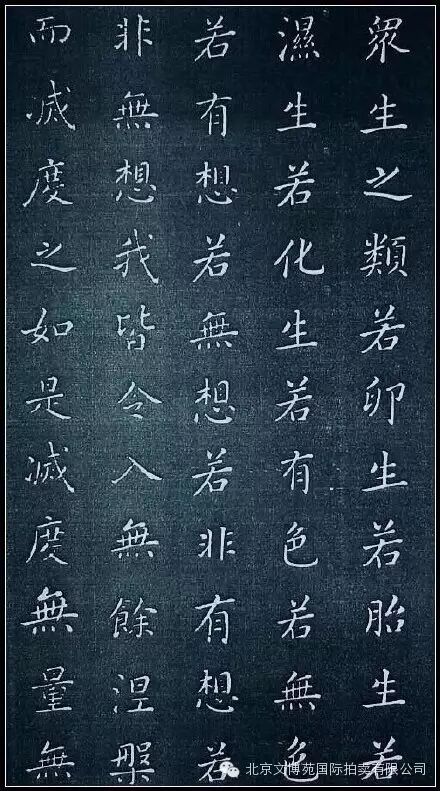 眾生之類若卵生若胎生若
濕生若化生若有色若無色
若有想若無想若非有想若
非無想我皆令入無餘涅槃
而滅度之如是滅度無量無
北京文博苑国际拍卖有限公司